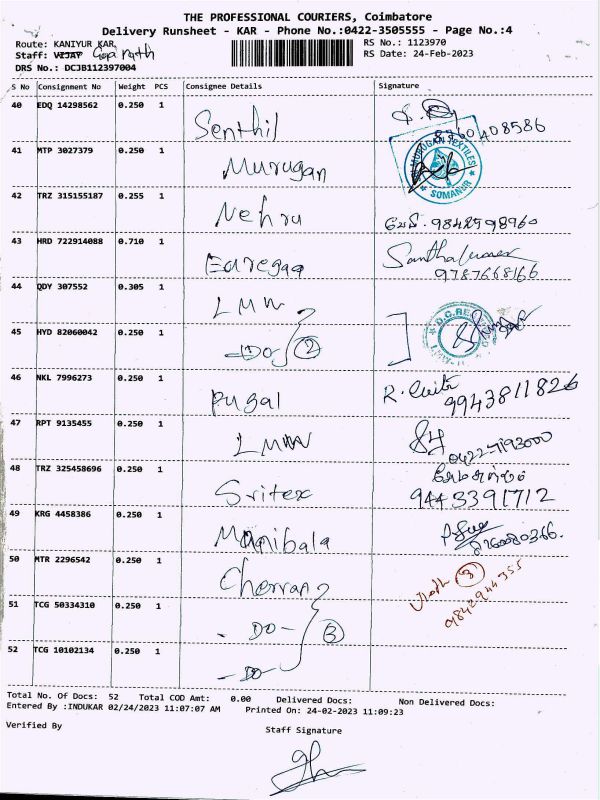 THE PROFESSIONAL COURIERS, Coimbatore
Delivery Runsheet - KAR - Phone No.:0422-3505555 - Page No.:4
Route: KANIYUR KAR
RS No.: 1123970
Staff: VIJAY Gopinath
RS Date: 24-Feb-2023
DRS No.: DCJB112397004
S No Consignment No Weight PCS Consignee Details Signature
40 EDQ 14298562 0.250 1 Senthil
41 MTP 3027379 0.250 1 Murugan
MURUGAN TEXTILES
SOMANUR
42 TRZ 315155187 0.255 1 Nehru 9842598960
43 HRD 722914088 0.710 1
9787668166
44 QDY 307552 0.305 1 LMW
45 HYD 82060042 0.250 1 -Do- 2
46 NKL 7996273 0.250 1 Pugal 9943811826
47 RPT 9135455 0.250 1 LMW
48 TRZ 325458696 0.250 1 Sritex
9443391712
49 KRG 4458386 0.250 1 Manibala
50 MTR 2296542 0.250 1 Cherran 3
9842944355
51 TCG 50334310 0.250 1 - Do - 3
52 TCG 10102134 0.250 1 - Do -
Total No. Of Docs: 52 Total COD Amt: 0.00 Delivered Docs: Non Delivered Docs:
Entered By :INDUKAR 02/24/2023 11:07:07 AM Printed On: 24-02-2023 11:09:23
Verified By
Staff Signature